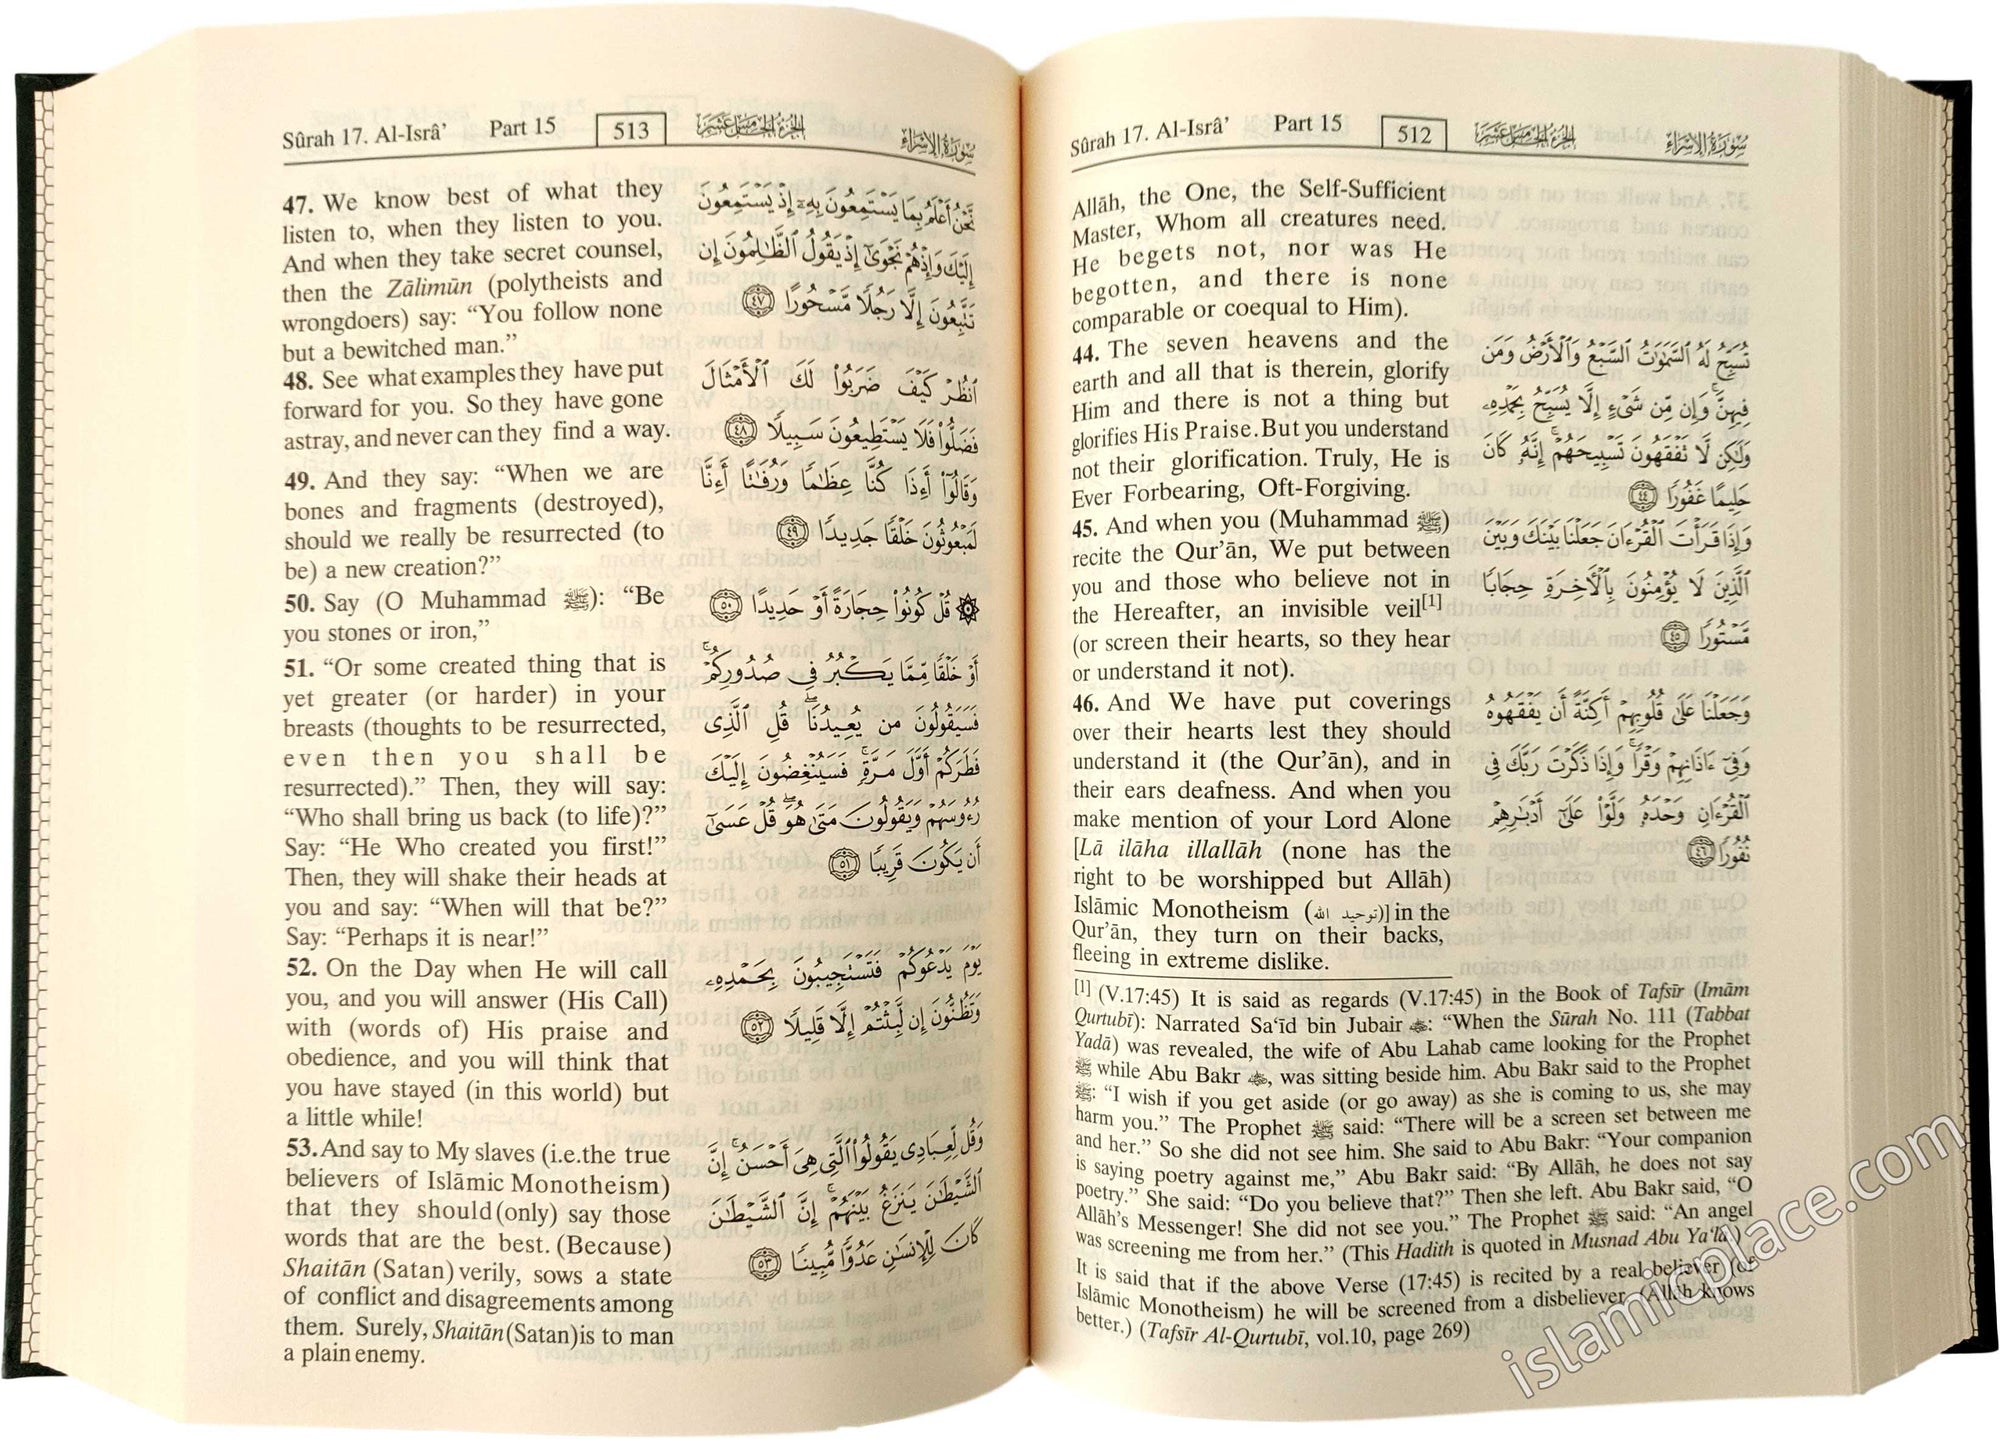 Sûrah 17. Al-Isrâ’ Part 15 512 الجزء الخامس عشر سورة الإسراء
Allāh, the One, the Self-Sufficient
Master, Whom all creatures need.
He begets not, nor was He
begotten, and there is none
comparable or coequal to Him).
44. The seven heavens and the
earth and all that is therein, glorify
Him and there is not a thing but
glorifies His Praise. But you understand
not their glorification. Truly, He is
Ever Forbearing, Oft-Forgiving.
45. And when you (Muhammad ﷺ)
recite the Qur’ān, We put between
you and those who believe not in
the Hereafter, an invisible veil[1]
(or screen their hearts, so they hear
or understand it not).
46. And We have put coverings
over their hearts lest they should
understand it (the Qur’ān), and in
their ears deafness. And when you
make mention of your Lord Alone
[Lā ilāha illallāh (none has the
right to be worshipped but Allāh)
Islāmic Monotheism (توحيد الله)] in the
Qur’ān, they turn on their backs,
fleeing in extreme dislike.
تُسَبِّحُ لَهُ السَّمَٰوَٰتُ السَّبْعُ وَالْأَرْضُ وَمَن
فِيهِنَّ ۚ وَإِن مِّن شَيْءٍ إِلَّا يُسَبِّحُ بِحَمْدِهِۦ
وَلَٰكِن لَّا تَفْقَهُونَ تَسْبِيحَهُمْ ۗ إِنَّهُۥ كَانَ
حَلِيمًا غَفُورًا ٤٤
وَإِذَا قَرَأْتَ الْقُرْءَانَ جَعَلْنَا بَيْنَكَ وَبَيْنَ
الَّذِينَ لَا يُؤْمِنُونَ بِالْأَٓخِرَةِ حِجَابًا
مَّسْتُورًا ٤٥
وَجَعَلْنَا عَلَىٰ قُلُوبِهِمْ أَكِنَّةً أَن يَفْقَهُوهُ
وَفِىٓ ءَاذَانِهِمْ وَقْرًا ۚ وَإِذَا ذَكَرْتَ رَبَّكَ فِى
الْقُرْءَانِ وَحْدَهُۥ وَلَّوْا۟ عَلَىٰٓ أَدْبَٰرِهِمْ
نُفُورًا ٤٦
[1] (V.17:45) It is said as regards (V.17:45) in the Book of Tafsīr (Imām
Qurtubī): Narrated Sa‘īd bin Jubair: “When the Sūrah No. 111 (Tabbat
Yadā) was revealed, the wife of Abu Lahab came looking for the Prophet
ﷺ while Abu Bakr, was sitting beside him. Abu Bakr said to the Prophet
ﷺ: “I wish if you get aside (or go away) as she is coming to us, she may
harm you.” The Prophet ﷺ said: “There will be a screen set between me
and her.” So she did not see him. She said to Abu Bakr: “Your companion
is saying poetry against me,” Abu Bakr said: “By Allāh, he does not say
poetry.” She said: “Do you believe that?” Then she left. Abu Bakr said, “O
Allāh’s Messenger! She did not see you.” The Prophet ﷺ said: “An angel
was screening me from her.” (This Hadith is quoted in Musnad Abu Ya‘lā.)
It is said that if the above Verse (17:45) is recited by a real believer (of
Islāmic Monotheism) he will be screened from a disbeliever. (Allāh knows
better.) (Tafsīr Al-Qurtubī, vol.10, page 269)
Sûrah 17. Al-Isrâ’ Part 15 513 الجزء الخامس عشر سورة الإسراء
47. We know best of what they
listen to, when they listen to you.
And when they take secret counsel,
then the Zālimūn (polytheists and
wrongdoers) say: “You follow none
but a bewitched man.”
48. See what examples they have put
forward for you. So they have gone
astray, and never can they find a way.
49. And they say: “When we are
bones and fragments (destroyed),
should we really be resurrected (to
be) a new creation?”
50. Say (O Muhammad ﷺ): “Be
you stones or iron,”
51. “Or some created thing that is
yet greater (or harder) in your
breasts (thoughts to be resurrected,
even then you shall be
resurrected).” Then, they will say:
“Who shall bring us back (to life)?”
Say: “He Who created you first!”
Then, they will shake their heads at
you and say: “When will that be?”
Say: “Perhaps it is near!”
52. On the Day when He will call
you, and you will answer (His Call)
with (words of) His praise and
obedience, and you will think that
you have stayed (in this world) but
a little while!
53. And say to My slaves (i.e.the true
believers of Islāmic Monotheism)
that they should (only) say those
words that are the best. (Because)
Shaitān (Satan) verily, sows a state
of conflict and disagreements among
them. Surely, Shaitān (Satan) is to man
a plain enemy.
نَّحْنُ أَعْلَمُ بِمَا يَسْتَمِعُونَ بِهِۦٓ إِذْ يَسْتَمِعُونَ
إِلَيْكَ وَإِذْ هُمْ نَجْوَىٰٓ إِذْ يَقُولُ الظَّٰلِمُونَ إِن
تَتَّبِعُونَ إِلَّا رَجُلًا مَّسْحُورًا ٤٧
انظُرْ كَيْفَ ضَرَبُوا۟ لَكَ الْأَمْثَالَ
فَضَلُّوا۟ فَلَا يَسْتَطِيعُونَ سَبِيلًا ٤٨
وَقَالُوٓا۟ أَءِذَا كُنَّا عِظَٰمًا وَرُفَٰتًا أَءِنَّا
لَمَبْعُوثُونَ خَلْقًا جَدِيدًا ٤٩
۞ قُلْ كُونُوا۟ حِجَارَةً أَوْ حَدِيدًا ٥٠
أَوْ خَلْقًا مِّمَّا يَكْبُرُ فِى صُدُورِكُمْ ۚ
فَسَيَقُولُونَ مَن يُعِيدُنَا ۖ قُلِ الَّذِى
فَطَرَكُمْ أَوَّلَ مَرَّةٍ ۚ فَسَيُنْغِضُونَ إِلَيْكَ
رُءُوسَهُمْ وَيَقُولُونَ مَتَىٰ هُوَ ۖ قُلْ عَسَىٰٓ
أَن يَكُونَ قَرِيبًا ٥١
يَوْمَ يَدْعُوكُمْ فَتَسْتَجِيبُونَ بِحَمْدِهِۦ
وَتَظُنُّونَ إِن لَّبِثْتُمْ إِلَّا قَلِيلًا ٥٢
وَقُل لِّعِبَادِى يَقُولُوا۟ الَّتِى هِىَ أَحْسَنُ ۚ إِنَّ
الشَّيْطَٰنَ يَنزَغُ بَيْنَهُمْ ۚ إِنَّ الشَّيْطَٰنَ
كَانَ لِلْإِنسَٰنِ عَدُوًّا مُّبِينًا ٥٣
islamicplace.com